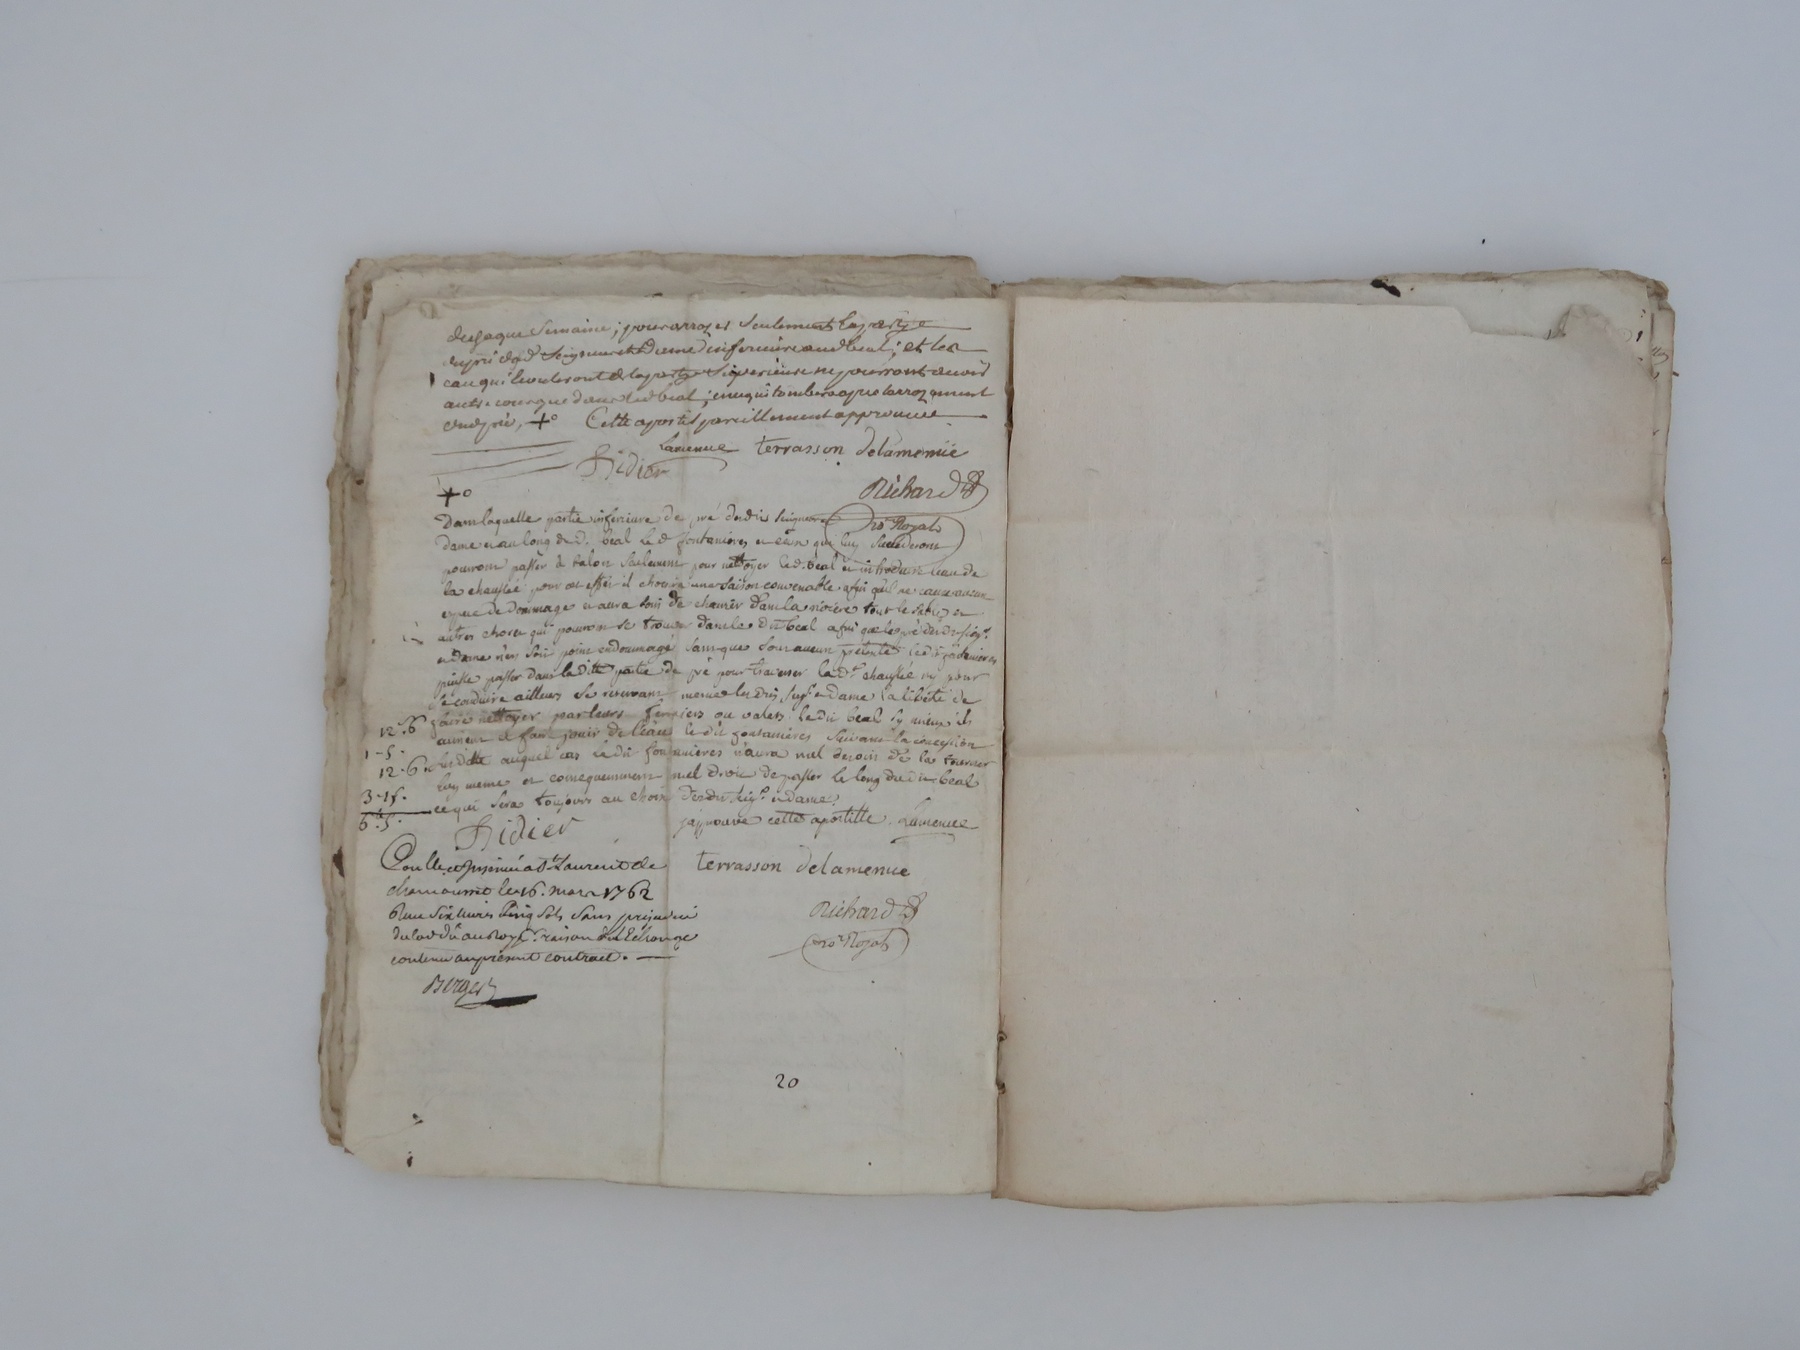 de chaque semaine; pour arroser seulement la partie
du pré desd. Seigneur et Dame inferieure aud. beal; et les
eaux qui levederont de la partie superieure ne pourront avoir
autre cours que dans led. beal; en ce qui tombera apres larrozement
dud. pré, +° Cette apostil pareillement approuvée
Lamenue terrasson delamenuë
Didier
Richard
no.re Royal
+°
Dans laquelle partie inferieure de pré desdits Seigneur
dame et au long dud. beal led. fontanieres et ceux qui luy succederont
pourront passer à talon seulement pour nettoyer led. beal et introduire l'eau de
la chaussée pour cet effet il choisira une saison convenable afin qu'il ne cause aucun
espece de dommage et aura soin de chanier dans la riviere tout le et
autres choses qui pourront se trouver dans le dit beal afin que le pré desdits seig.r
et dame n'en soit point endommagé sans que sous aucun pretexte ledit fontanieres
puisse passer dans la ditte partie de pré pour traverser la d.te chaussée ny pour
se conduire ailleurs se reservant meme lesdits seig.r et dame la liberté de
faire nettoyer par leurs fermiers ou valets ledit beal sy mieux ils
aiment et faire jouir de l'eau le dit fontanieres suivant la concession
susditte auquel cas le dit fontanieres n'aura nul besoin de la tourner
luy meme et consequemment nul droit de passer le long dudit beal
ce qui sera toujours au choix desdits seig.r et dame
12.6
1-5.
12-6
3-15.
6-5.
Didier j'approuve cette apostille. Lamenue
terrasson delamenue
Richard
no.re Royal
Conllé et Insinué a St Laurent de
chamousset le 16. mars 1762
Reçu six livres cinq sols sans prejudice
du lod dû au Roy a raison de l'Echange
contenu au present contract.
Berger
20